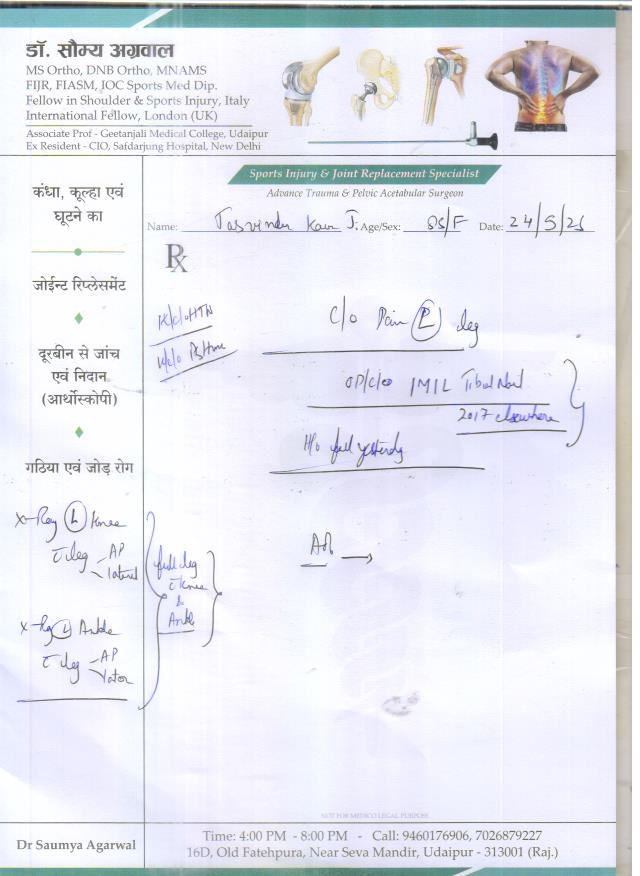 डॉ. सौम्य अग्रवाल
MS Ortho, DNB Ortho, MNAMS
FIJR, FIASM, IOC Sports Med Dip.
Fellow in Shoulder & Sports Injury, Italy
International Fellow, London (UK)
Associate Prof - Geetanjali Medical College, Udaipur
Ex Resident - CIO, Safdarjung Hospital, New Delhi
Sports Injury & Joint Replacement Specialist
Advance Trauma & Pelvic Acetabular Surgeon
Name: Jasvinder Kaur J. Age/Sex: /F Date: 24/5/25
Rx
कंधा, कूल्हा एवं
घूटने का
जोईन्ट रिप्लेसमेंट
दूरबीन से जांच
एवं निदान
(आर्थोस्कोपी)
गठिया एवं जोड़ रोग
K/c/o HTN
K/c/o
C/o Pain L leg
IMIL Tibial Nail
2017 elsewhere
H/o fall yesterday
X-Ray L Knee
c leg AP
lateral
X-Ray L Ankle
c leg AP
full leg
c Knee
&
Ankle
NOT FOR MEDICO LEGAL PURPOSE
Dr Saumya Agarwal
Time: 4:00 PM - 8:00 PM - Call: 9460176906, 7026879227
16D, Old Fatehpura, Near Seva Mandir, Udaipur - 313001 (Raj.)